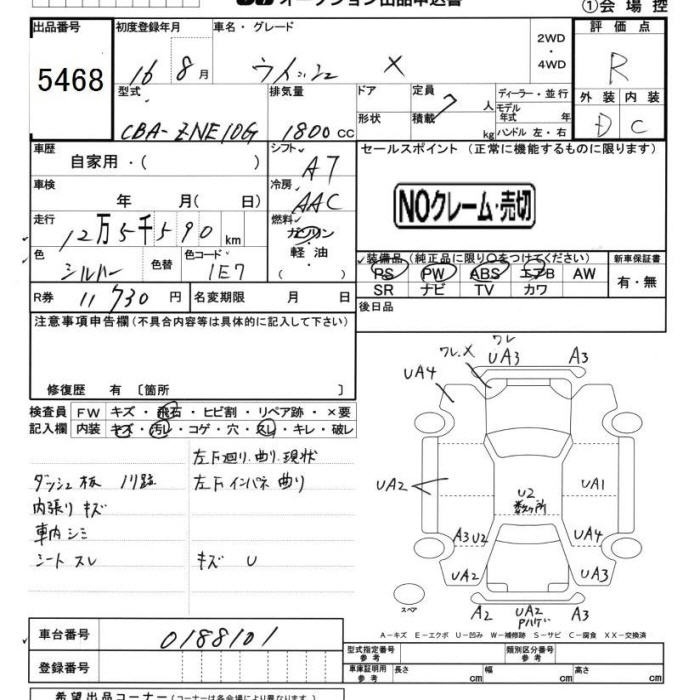 オークション出品申込書
①会場控
出品番号
5468
初度登録年月
16 8月
車名・グレード
ウィッシュ X
2WD
・
4WD
評価点
R
外装 内装
D C
型式
CBA-ZNE10G
排気量
1800cc
ドア
形状
定員 7人
積載 kg
ディーラー・並行
モデル年式 年
ハンドル 左・右
車歴
自家用・( )
シフト
AT
セールスポイント (正常に機能するものに限ります)
NOクレーム・売切
車検
年 月( 日)
冷房
AAC
走行
12万5千590km
燃料
ガソリン
軽油
( )
色
シルバー
色替
色コード
1E7
装備品 (純正品に限り○をつけてください)
PS PW ABS エアB AW
SR ナビ TV カワ
新車保証書
有・無
R券 11730円
名変期限 月 日
後日品
注意事項申告欄(不具合内容等は具体的に記入して下さい)
修復歴 有 〔箇所 〕
検査員記入欄
FW キズ・飛石・ヒビ割・リペア跡・×要
内装 キズ・汚レ・コゲ・穴・スレ・キレ・破レ
左下廻り.曲り.現状
ダッシュ板
左下インパネ曲り
内張りキズ
車内シミ
シートスレ
キズ U
ワレ
ワレ.X UA3 A3
UA4
UA2 UA1
U2
数ヶ所
A3 U2 UA4
UA2 UA3
スペア
A2 UA2 A3
Pハゲ
A-キズ E-エクボ U-凹み W-補修跡 S-サビ C-腐食 XX-交換済
車台番号
0188101
登録番号
型式指定番号
参考
類別区分番号
参考
車庫証明用
参考
長さ cm
幅 cm
高さ cm
希望出品コーナー(コーナーは各会場により異なります)